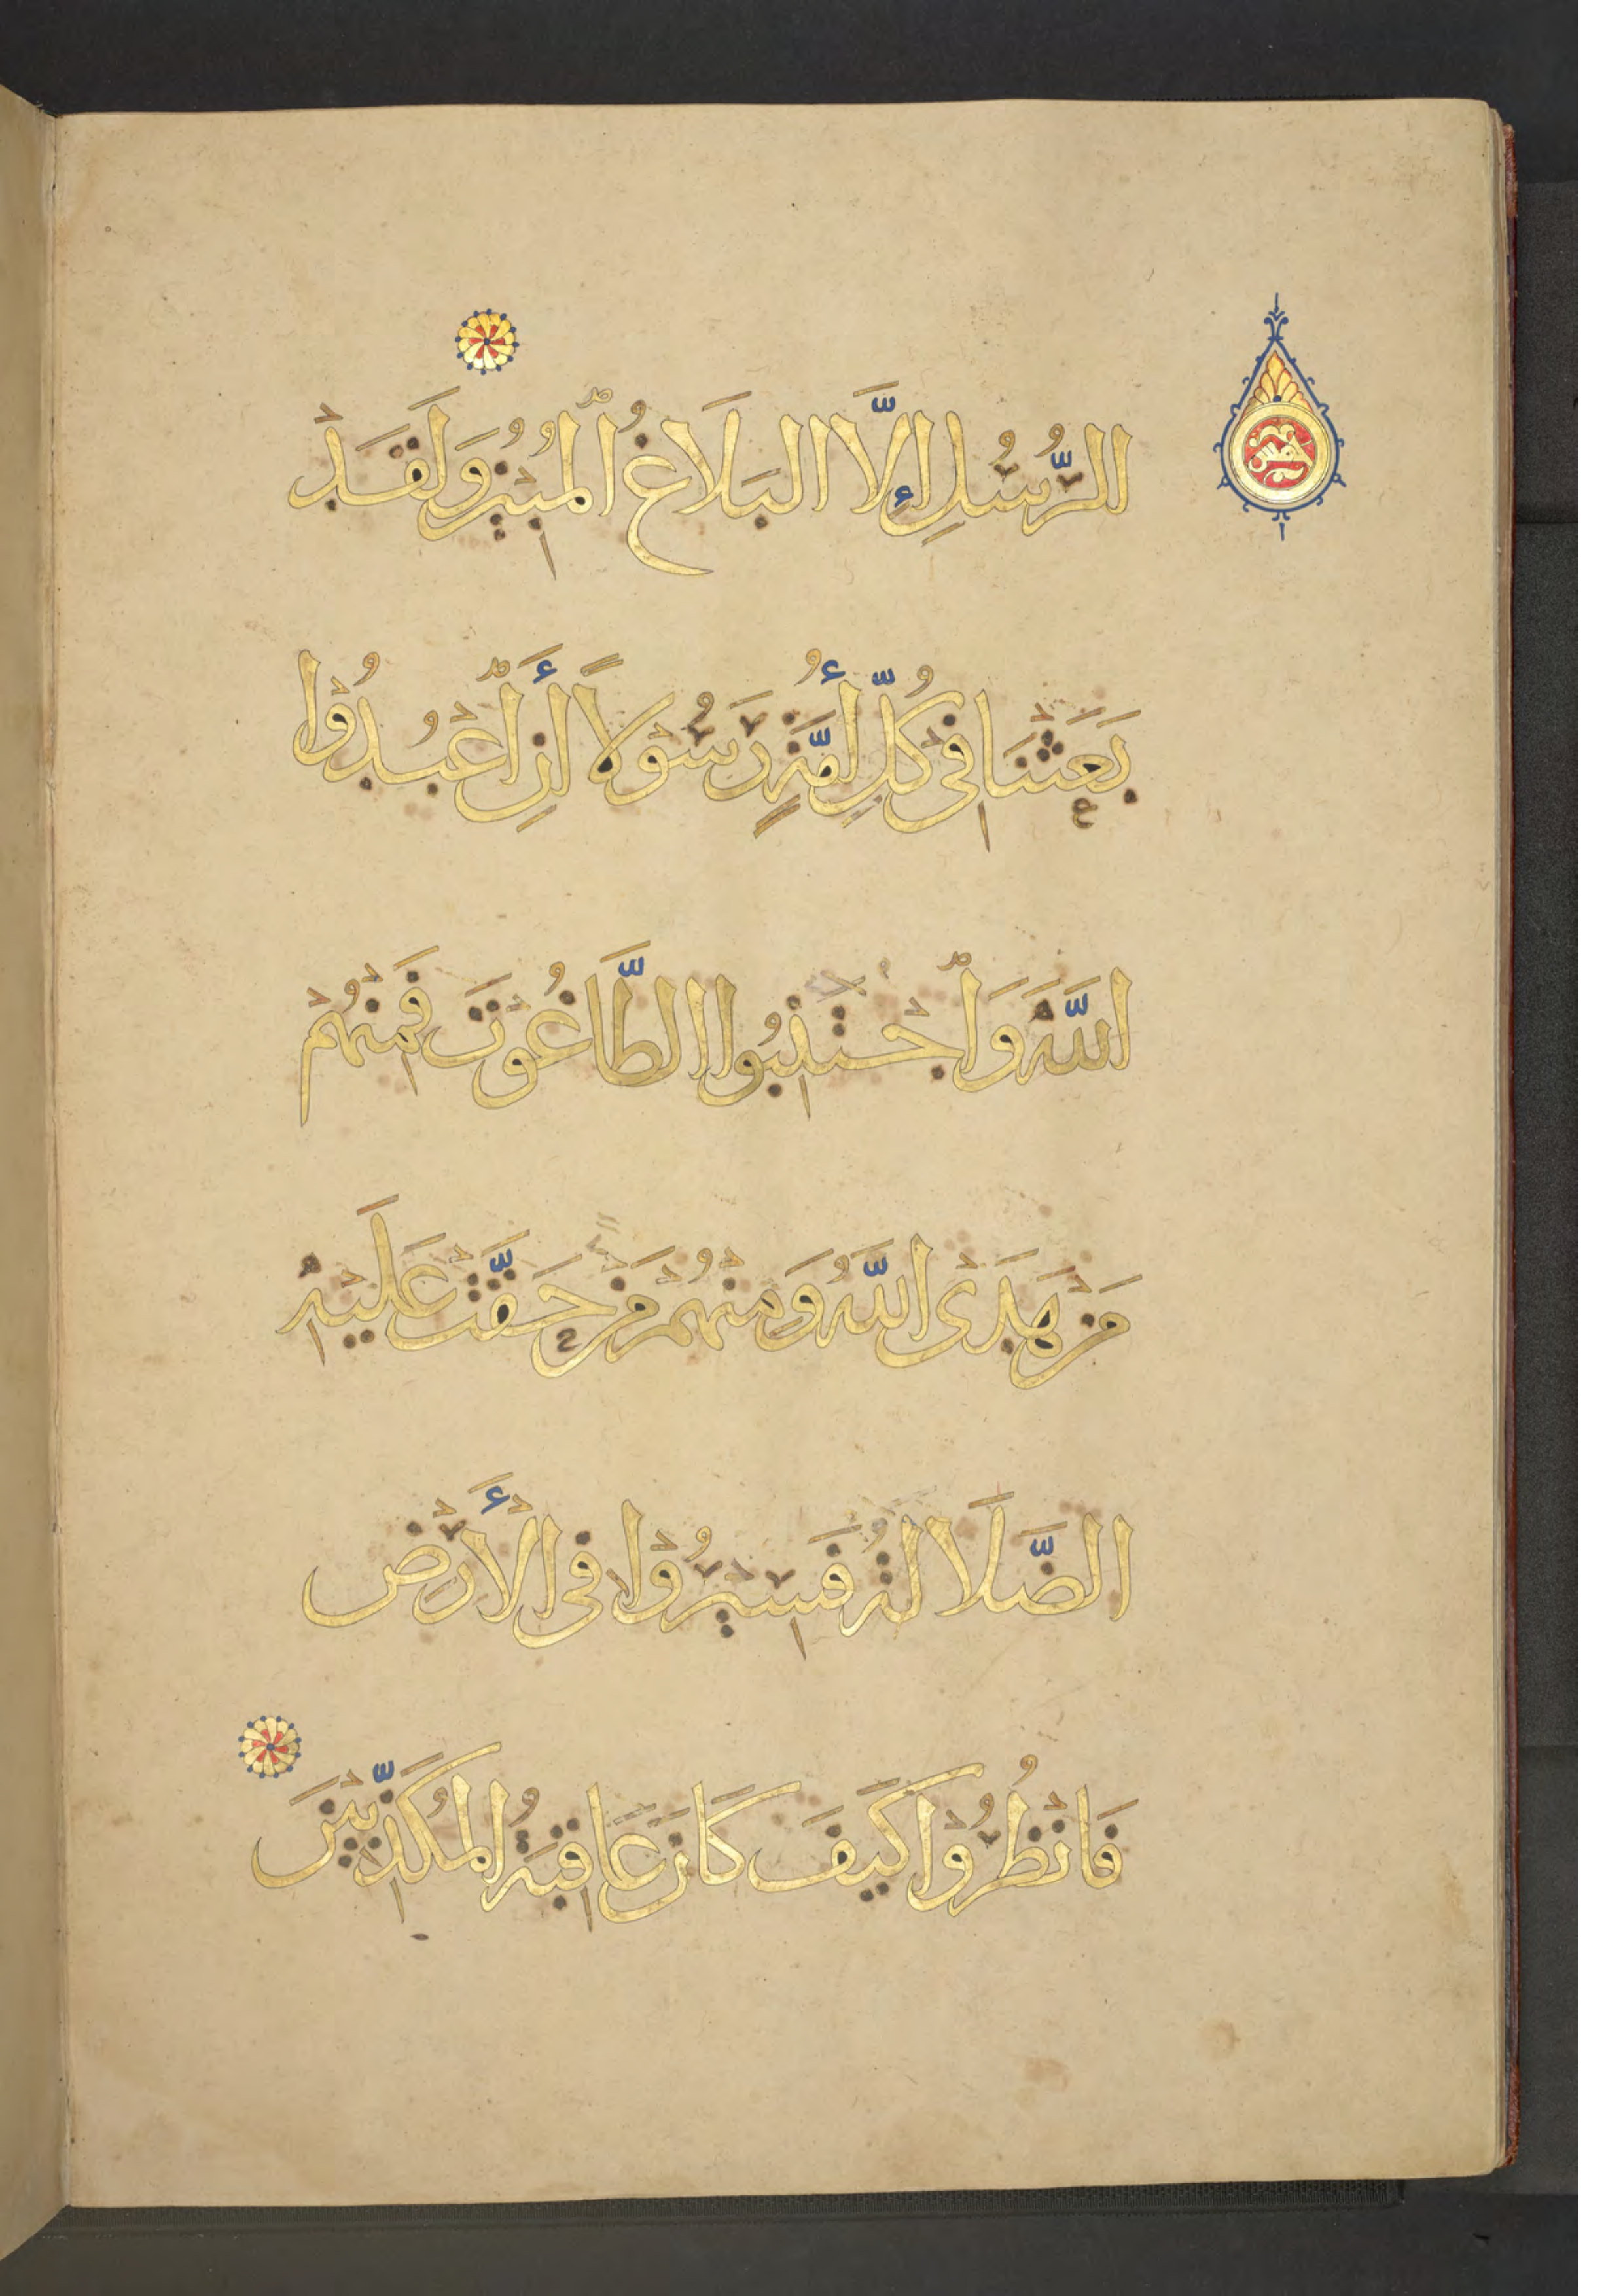 الرُّسُلِ إِلَّا البَلَاغُ ٱلمُبِينُ وَلَقَدْ
بَعَثْنَا فِى كُلِّ أُمَّةٍ رَسُوْلاً أَنِ ٱعْبُدُوْا
اللَّهَ وَٱجْتَنِبُوا الطَّاغُوْتَ فَمِنْهُمْ
مَنْ هَدَى اللَّهُ وَمِنْهُمْ مَنْ حَقَّتْ عَلَيْهِ
الضَّلَالَةُ فَسِيْرُوْا فِى الْأَرْضِ
فَانْظُرُوْا كَيْفَ كَانَ عَاقِبَةُ المُكَذِّبِيْنَ